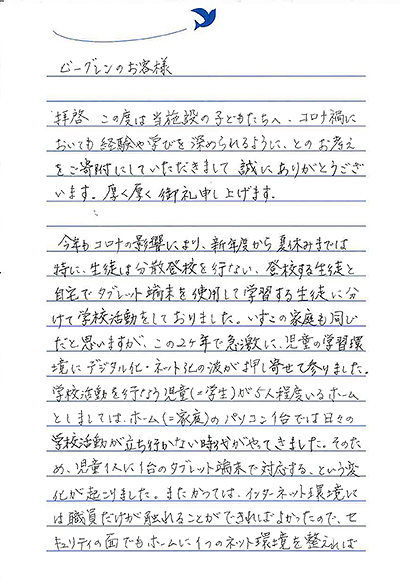 ビーグレンのお客様
拝啓 この度は当施設の子どもたちへ、コロナ禍に
おいても経験や学びを深められるように、とのお考え
をご寄附にしていただきまして 誠にありがとうござ
います。厚く厚く御礼申し上げます。
今年もコロナの影響により、新年度から夏休みまでは
特に、生徒は分散登校を行ない、登校する生徒と
自宅でタブレット端末を使用して学習する生徒に分
けて学校活動をしておりました。いずこの家庭も同じ
だと思いますが、この2ヶ年で急激に、児童の学習環
境にデジタル化・ネット化の波が押し寄せて参りました。
学校活動を行なう児童(=学生)が5人程度いるホーム
としましては、ホーム(=家庭)のパソコン1台では日々の
学校活動が立ち行かない時代がやってきました。そのた
め、児童1人に1台のタブレット端末で対応する、という変
化が起こりました。またかつては、インターネット環境に
は職員だけが触れることができればよかったので、セ
キュリティの面でもホームに1つのネット環境を整えれば